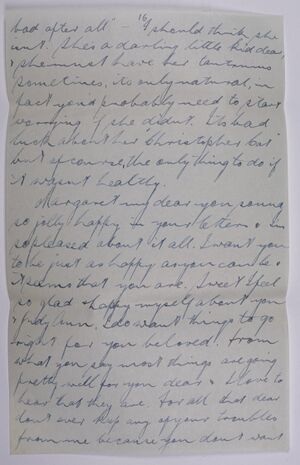 16/
bad after all" - I should think she
isn't. She's a darling little kid dear,
& she must have her tantrums
sometimes, its only natural, in
fact you'd probably need to start
worrying if she didn't. Its bad
luck about her "Christopher" cat
but of course, the only thing to do if
it wasn't healthy.
Margaret my dear you sound
so jolly happy in your letters & I'm
so pleased about it all. I want you
to be just as happy as you can be &
it seems that you are. Sweet I feel
so glad & happy myself about you
& Judy Ann, I do want things to go
right for you beloved. From
what you say most things are going
pretty well for you dear & I love to
hear that they are. For all that dear
don't ever keep any of your troubles
from me because you don't want